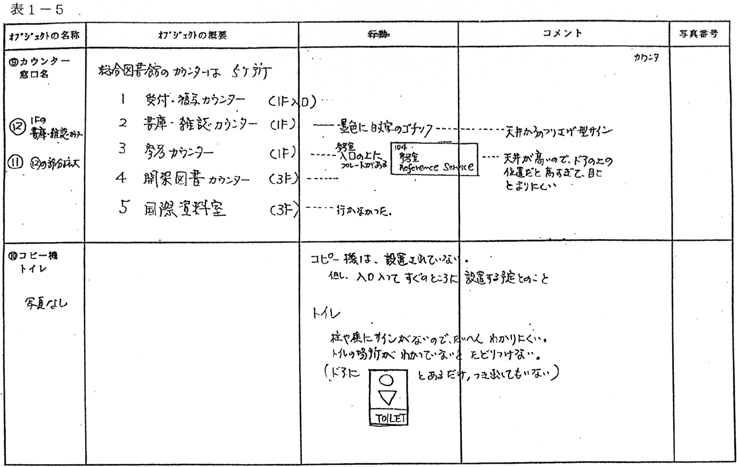 表1－5
ｵﾌﾞｼﾞｪｸﾄの名称 ｵﾌﾞｼﾞｪｸﾄの概要 行動 コメント 写真番号
⑨カウンター
窓口名
⑫ 1Fの
書庫・雑誌カウンター
⑪ ⑫の部分拡大
総合図書館のカウンターは 5ヶ所
1 受付・複写カウンター (1F入口)
2 書庫・雑誌カウンター (1F)
3 参考カウンター (1F)
4 開架図書カウンター (3F)
5 国際資料室 (3F)
墨色に白文字のゴチック
参考室
入口の上に
プレートがある
104
参考室
Reference Service
行かなかった。
カウンタ
天井からのつり下げ型サイン
天井が高いので、ドアの上の
位置だと高すぎて、目に
とまりにくい
⑩コピー機
トイレ
写真なし
コピー機は、設置されていない。
但し、入口入ってすぐのところに設置する予定とのこと
トイレ
柱や壁にサインがないので、たいへんわかりにくい。
トイレの場所がわかっていないとたどりつけない。
(ドアに とあるだけ,つき出してもいない)
TOILET